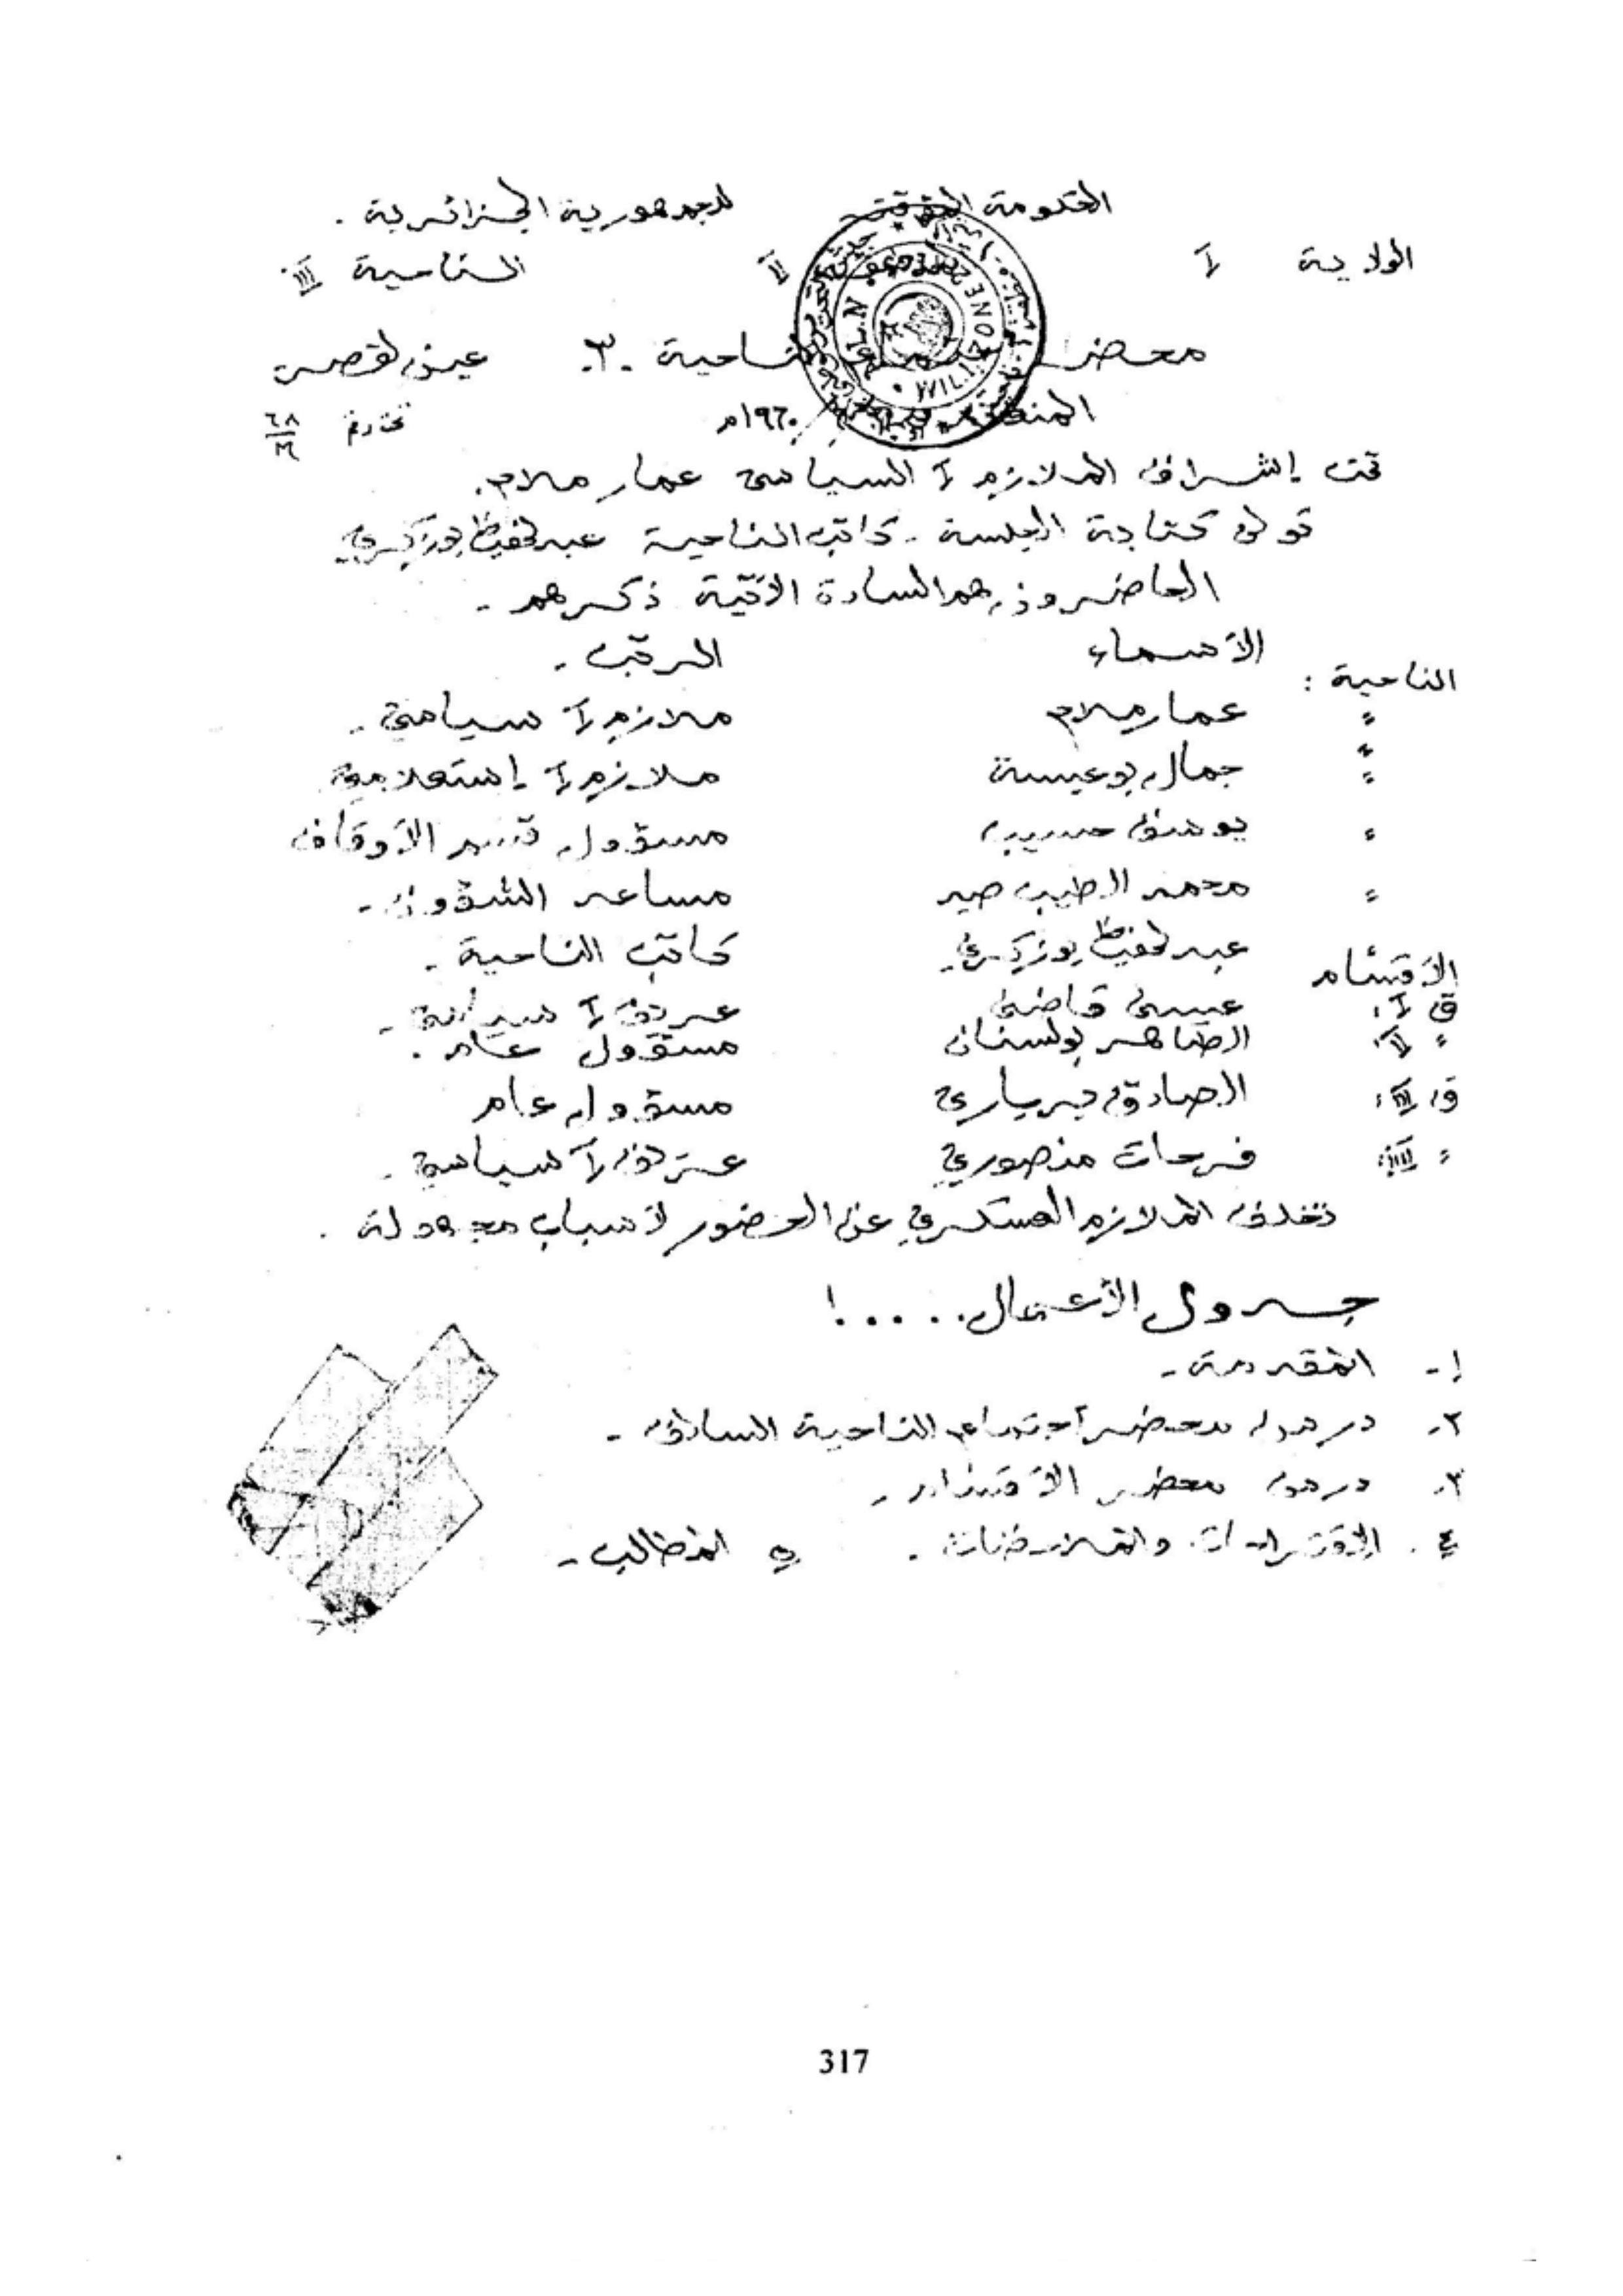 الحكومة المؤقتة للجمهورية الجزائرية .
الولاية I II الناحية III
محضر الناحية ٣. عين لقصر
١٩٦٠م تحت رقم ٦٨/٣
تحت إشراف الملازم I السياسي عمار ملاح.
تولى كتابة الجلسة - كاتب الناحية عبد لحفيظ بوزكري
الحاضرون هم السادة الآتية ذكرهم -
الأسماء الرتب -
الناحية :
〃 عمار ملاح ملازم I سياسي -
〃 جمال بوعيسة ملازم I إستعلامي
〃 يوسف حسيب مسؤول قسم الأوقاف
〃 محمد الطيب صيد مساعد الشؤون -
〃 عبد لحفيظ بوزكري - كاتب الناحية -
الأقسام
ق I: عيسى قاضي عريف I سياسي -
〃 II: الطاهر بولسنان مسؤول عام .
ق III: الصادق جرياري مسؤول عام
〃 IIII: فرحات منصوري عريف I سياسي -
تخلف الملازم العسكري عن الحضور لأسباب مجهولة .
جدول الأعمال.....!
١- المقدمة -
٢- درس محضر آجتماع الناحية السابق -
٣- درس محضر الأقسام -
٤ - الإقتراحات والمعارضات . ٥ المطالب -
A.L.N
WIL I ZONE 2
317